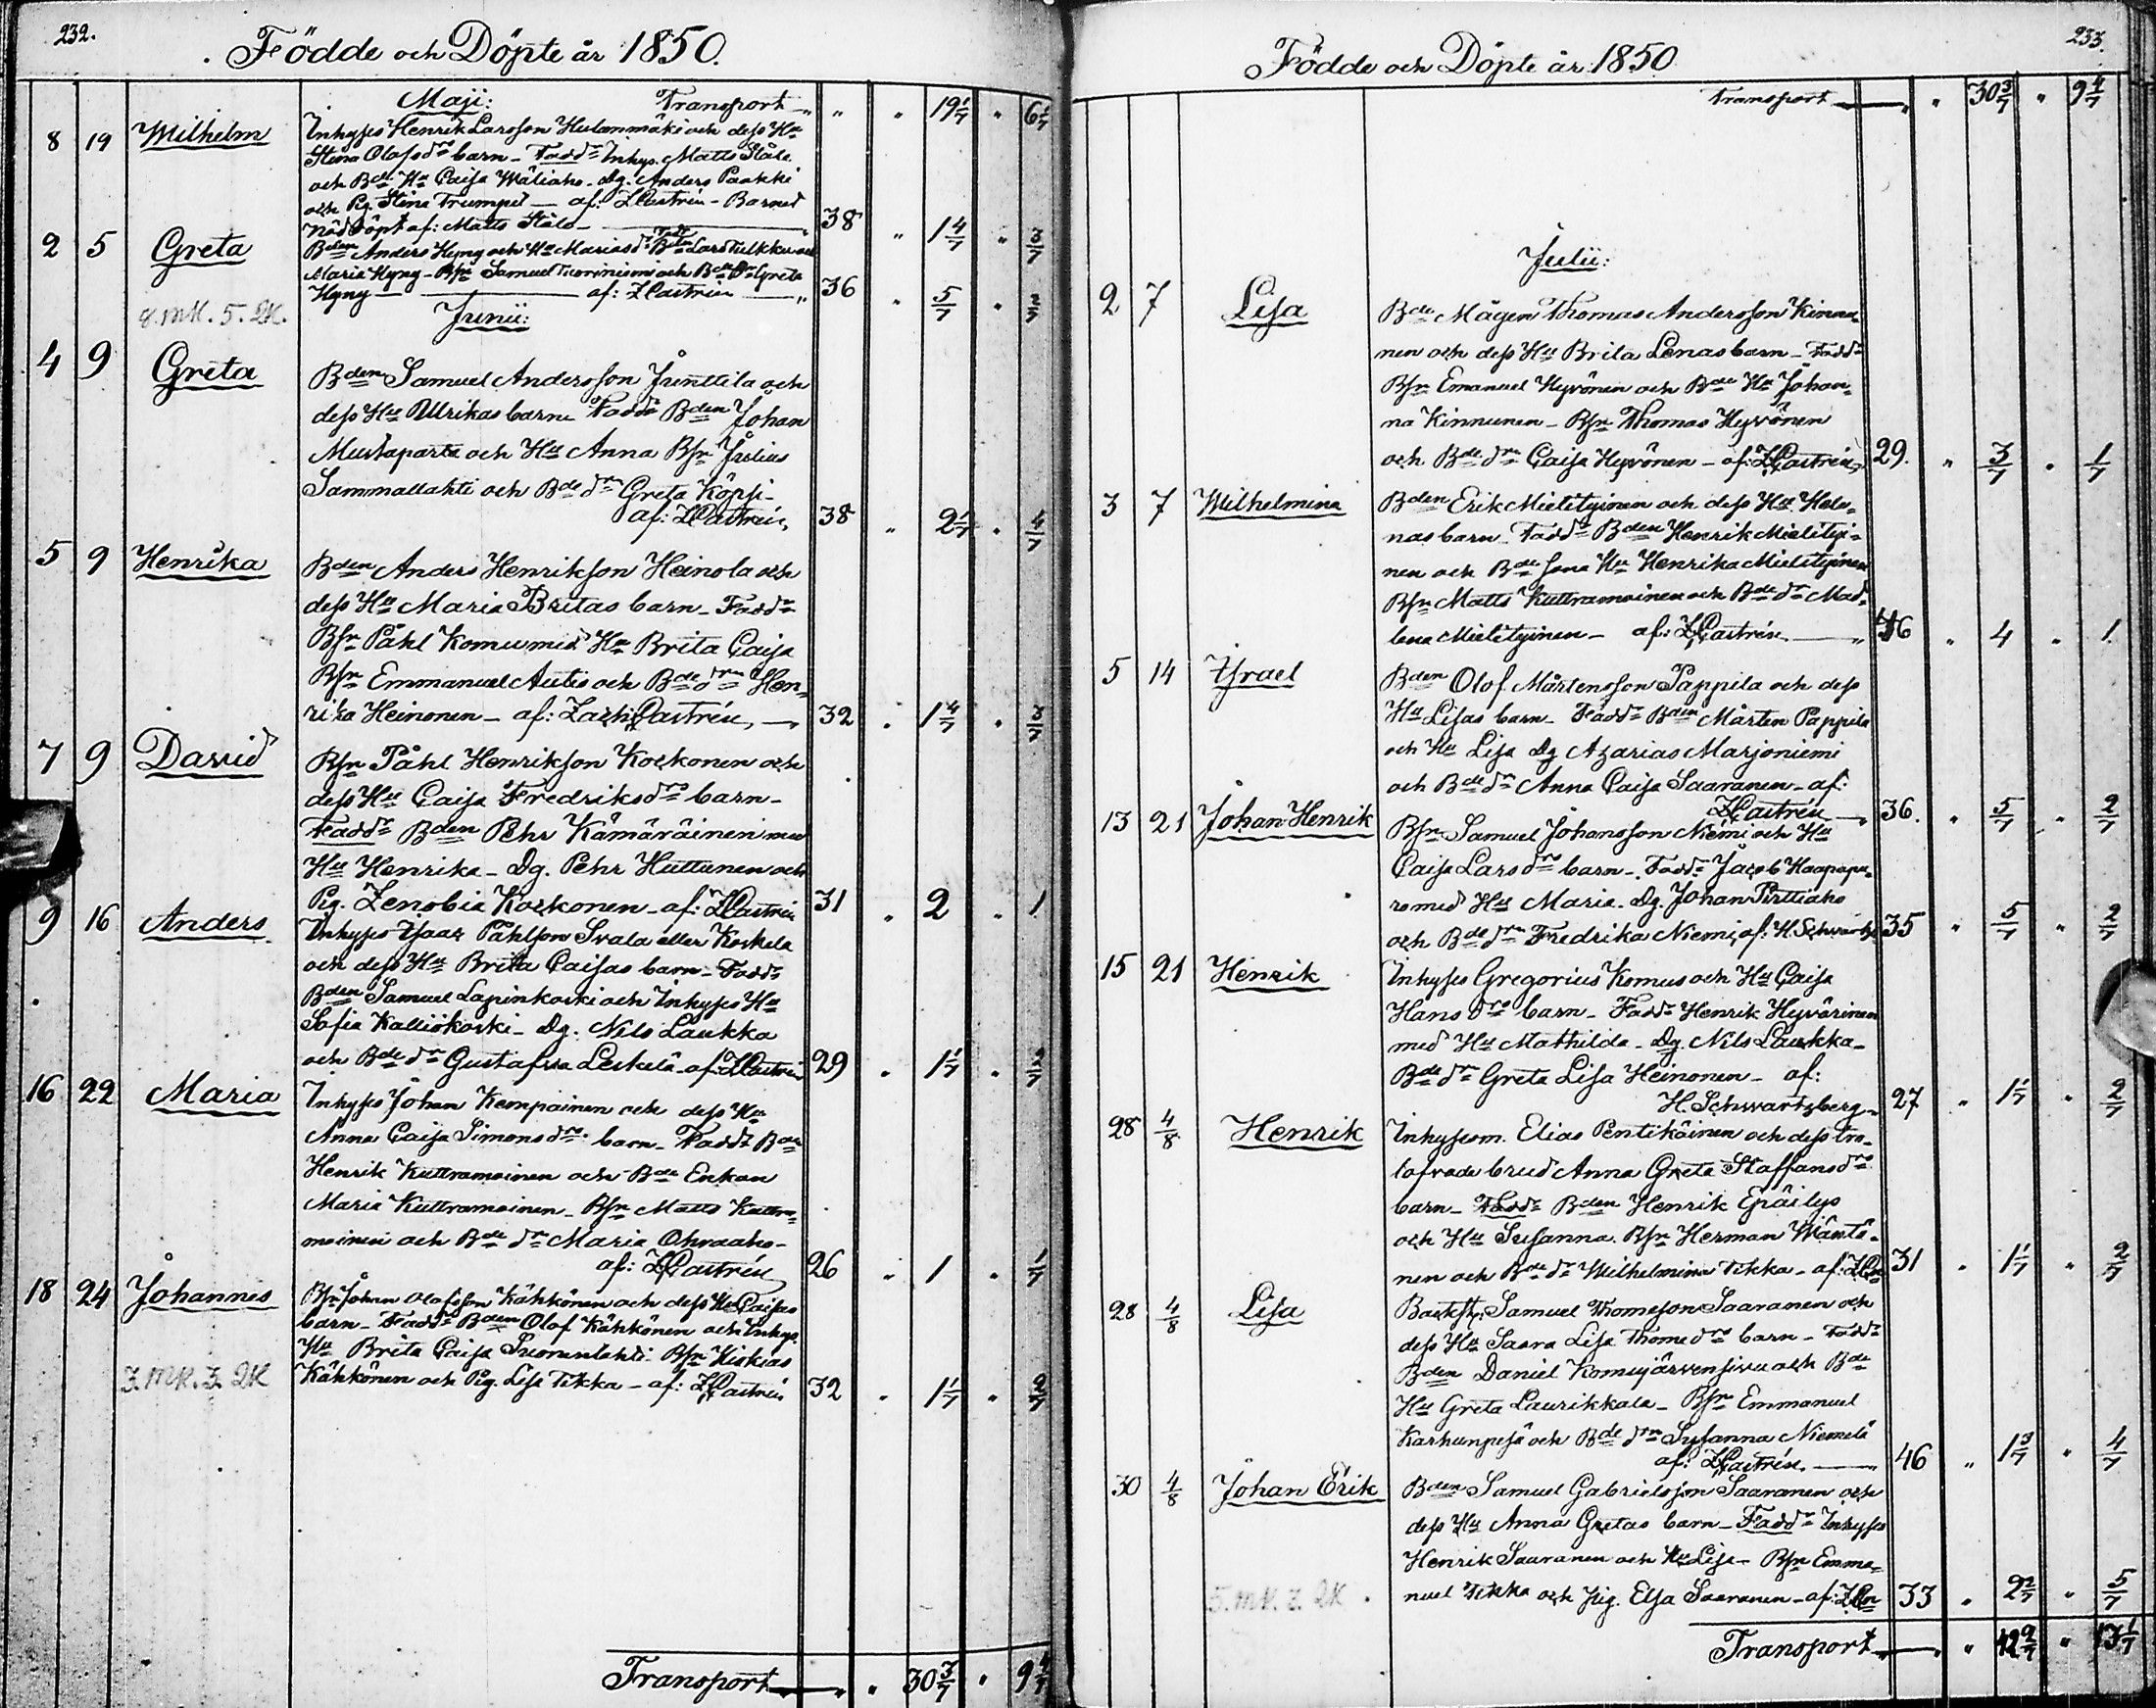 232.
Födde och Döpte år 1850.
Maji: Transport " " 19 1/7 " 6 1/7
8 19 Wilhelm Inhyses Henrik Larsson Hulammäki och dess Hu
Stina Olofsdr barn - Faddr Inhys. Matts Ståle
och Bde Hu Caisa Wäliaho - Dg. Anders Paakki
och Pig. Stina Trumpet — af: ZCastrén - Barnet
Nöddöpt af: Matts Ståle — 38 " 1 4/7 " 3/7
2 5 Greta Bden Anders Hyny och Hu Marias dr Faddr Bden Lars Tulkku och
Maria Hyny - Bsn Samuel Tuominiemi och Bde Dr Greta
Hyny — af: ZCastrén — " 36 " 5/7 " 2/7
8. mk. 5. QK.
Junii:
4 9 Greta Bden Samuel Andersson Junttila och
dess Hu Ullrikas barn Faddr Bden Johan
Mustaparta och Hu Anna Bsn Julius
Sammallahti och Bde dr Greta Köpsi -
af: ZCastrén, 38 " 2 1/7 " 4/7
5 9 Henrika Bden Anders Henrikson Heinola och
dess Hu Maria Britas barn - Faddr
Bsn Påhl Komu med Hu Brita Caisa
Bsn Emmanuel Autio och Bde drn Hen-
rika Heinonen - af: Zach: Castrén, — 32 " 1 4/7 " 3/7
7 9 David Bsn Påhl Henrikson Koskonen och
dess Hu Caisa Fredriksdrs barn -
Faddr Bden Pehr Kämäräinen med
Hu Henrika - Dg. Pehr Huttunen och
Pig. Zenobia Koskonen - af: ZCastrén 31 " 2 " 1
9 16 Anders Inhyses Isaac Påhlson Svala eller Koskela
och dess Hu Brita Caisas barn - Faddr
Bden Samuel Lapinkoski och Inhyses Hu
Sofia Kalliokoski - Dg. Nils Laukka
och Bde dr Gustafva Leskelä - af: ZCastrén 29 " 1 1/7 " 2/7
16 22 Maria Inhyses Johan Kempainen och dess Hu
Anna Caisa Simonsdrs barn - Faddr Bden
Henrik Kuttramoinen och Bde Enkan
Maria Kuttramoinen - Bsn Matts Kuttra-
moinen och Bde dr Maria Ohvaaho -
af: ZCastrén 26 " 1 " 1/7
18 24 Johannes Bsn Johan Olofsson Kähkönen och dess Hu Caisas
barn - Faddr Bden Olof Kähkönen och Inhys
Hu Brita Caisa Suorunlahti - Bsn Hiskias
Kähkönen och Pig. Lisa Tikka - af: ZCastrén 32 " 1 1/7 " 2/7
3. mk. 3. QK
Transport — " " 30 3/7 " 9 4/7
233.
Födde och Döpte år 1850
Transport — " " 30 3/7 " 9 4/7
Julii:
2 7 Lisa Bde Mågen Thomas Andersson Kinnu-
nen och dess Hu Brita Lenas barn - Faddr
Bsn Emanuel Hyvönen och Bde Hu Johan-
na Kinnunen - Bsn Thomas Hyvönen
och Bde drn Caisa Hyvönen - af: ZCastrén, 29. " 3/7 " 1/7
3 7 Wilhelmina Bden Erik Mielityinen och dess Hu Hele-
nas barn - Faddr Bden Henrik Mielityi-
nen och Bde sons Hu Henrika Mielityinen
Bsn Matts Kuttramoinen och Bde dr Mad-
lena Mielityinen - af: ZCastrén — " 46 " 4 " 1.
5 14 Israel Bden Olof Mårtensson Pappila och dess
Hu Lisas barn - Faddr Bden Mårten Pappila
och Hu Lisa Dg Azarias Marjoniemi
och Bde dr Anna Caisa Saaranen - af:
ZCastrén — 36. " 5/7 " 2/7
13 21 Johan Henrik Bsn Samuel Johansson Niemi och Hu
Caisa Larsdrs barn - Faddr Jacob Haapapu-
ro med Hu Maria - Dg. Johan Pirttiaho
och Bde drn Fredrika Niemi, af: H. Schwartzb 35 " 5/7 " 2/7
15 21 Henrik Inhyses Gregorius Komus och Hu Caisa
Hans drs barn - Faddr Henrik Hyvärinen
med Hu Mathilda - Dg. Nils Laukka -
Bde dr Greta Lisa Heinonen - af:
H. Schwartzberg - 27 " 1 1/7 " 2/7
28 4/8 Henrik Inhysesm. Elias Pentikäinen och dess tro-
lofvade brud Anna Greta Staffansdrs
barn - Faddr Bden Henrik Epäilys
och Hu Susanna. Bsn Herman Mäntö-
nen och Bde dr Wilhelmina Tikka - af: ZCn 31 " 1 1/7 " 2/7
28 4/8 Lisa Backst: Samuel Thomeson Saaranen och
dess Hu Saara Lisa Thomedrs barn - Faddr
Bden Daniel Komujärvensivu och Bde
Hu Greta Laurikkala - Bsn Emmanuel
Karhunpesä och Bde drn Susanna Niemelä
af: ZCastrén. — 46 " 1 3/7 " 4/7
30 4/8 Johan Erik Bden Samuel Gabrielsson Saaranen och
dess Hu Anna Gretas barn - Faddr Inhyses
Henrik Saaranen och Hu Lisa - Bsn Emma-
nuel Tikka och Pig. Elsa Saaranen - af: ZCn 33 " 2 2/7 " 5/7
5. mk. 3. QK.
Transport — " " 42 2/7 " 13 1/7